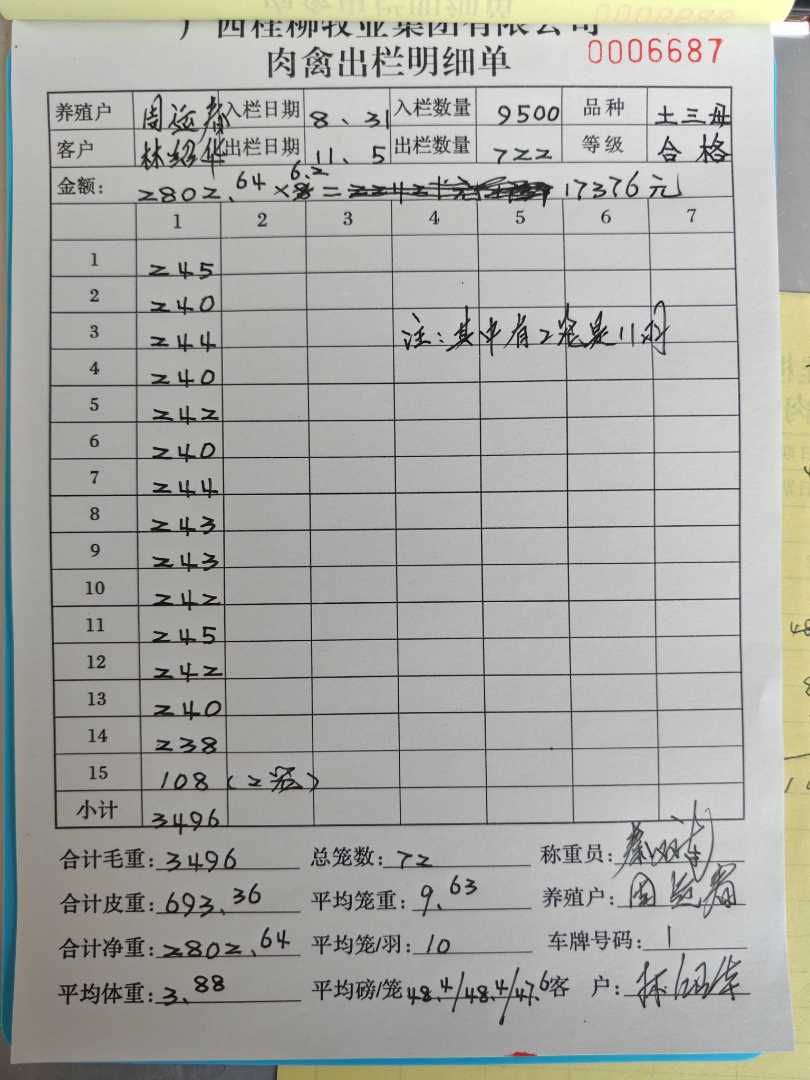 广西桂柳牧业集团有限公司
肉禽出栏明细单 0006687
养殖户 周运春 入栏日期 8、31 入栏数量 9500 品种 土三母
客户 林绍华 出栏日期 11、5 出栏数量 722 等级 合格
金额: 2802.64×6.2= 17376元
1 2 3 4 5 6 7
1 245
2 240
3 244 注:其中有2笼是11羽
4 240
5 242
6 240
7 244
8 243
9 243
10 242
11 245
12 242
13 240
14 238
15 108(2笼)
小计 3496
合计毛重:3496 总笼数:72 称重员:
合计皮重:693.36 平均笼重:9.63 养殖户:周运春
合计净重:2802.64 平均笼/羽:10 车牌号码:1
平均体重:3.88 平均磅/笼 48.4/48.4/47.6 客 户:林绍华